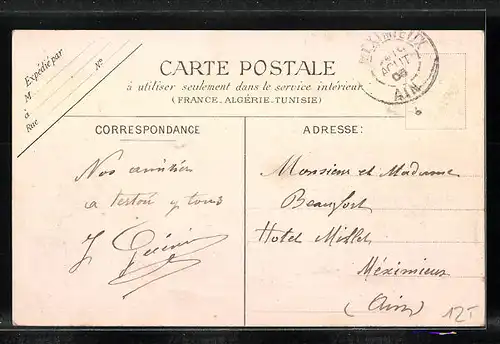 Expédié par
M
à
Rue
N°
CARTE POSTALE
à utiliser seulement dans le service intérieur
(FRANCE. ALGÉRIE. TUNISIE)
MEXIMIEUX
AOUT
08
AIN
CORRESPONDANCE
Nos amitiés
a
tous
J
ADRESSE:
Monsieur et Madame
Beaufort
Hotel
Méximieux
(Ain)
12T